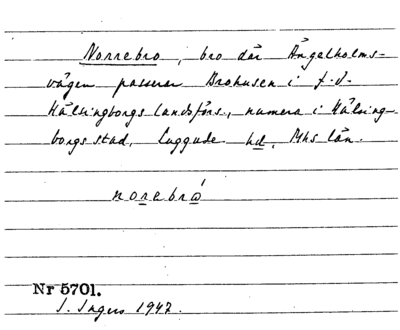 Norrebro, bro där Ängelholms-
vägen passerar Brohusen i f.d.
Hälsingborgs landsförs., numera i Hälsing-
borgs stad, Luggude hd, Mhs län.
norebró
Nr 5701.
I. Ingers 1947.